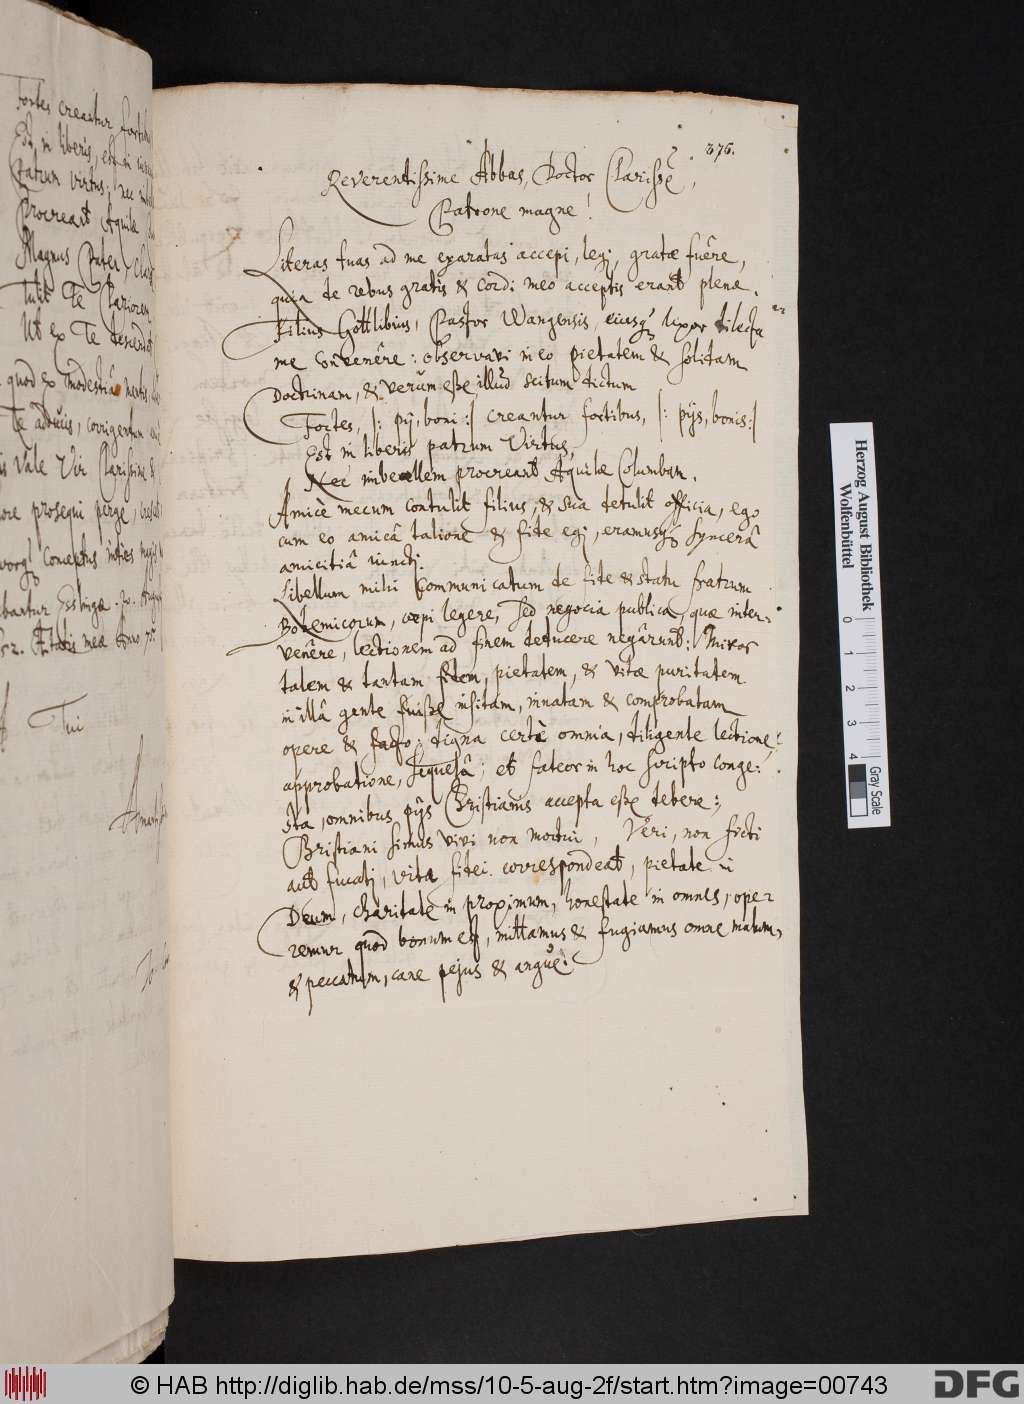 Fortes creantur fortibus
Est in liberis, est in
Patrum virtus; nec
Procreant Aquilae
Magnus Pater, Clar
Tulit Te Clariorem
Ut ex Te descend
quod ex modestia mentis,
Te adducis, corrigentem
Vale Vir Clarissime &
prosequi perge,
conceptus
Essingae. 20. August
52. AEtatis meae Anno 70.
Tui
376.
Reverentissime Abbas, Doctor Clarisse,
Patrone magne!
Literas tuas ad me exaratas accepi, legi, gratae fuêre,
quia de rebus gratis & cordi meo acceptis erant plenae.
Filius Gottlibius, Pastor Wangensis, eiusq́ Uxor dilecta
me convenêre: observavi in eo pietatem & solidam
Doctrinam, & verum esse illud scitum dictum
Fortes, |: pij, boni :| creantur fortibus, |: pijs, bonis :|
Est in liberis patrum Virtus,
Nec imbecillem procreant Aquilae Columbam.
Amicè mecum contulit filius, & sua detulit officia, ego
cum eo amicâ talione & fide egi, eramusq́ syncerâ
amicitiâ iuncti.
Libellum mihi communicatum de fide & statu fratrum
Bohemicorum, coepi legere, sed negocia publica, quae inter-
venêre, lectionem ad finem deducere negârunt: Miror
talem & tantam fidem, pietatem, & vitae puritatem
in illâ gente fuisse insitam, innatam & comprobatam
opere & facto; digna certè omnia, diligente lectione,
approbatione, sequelâ; et fateor in hoc scripto conge:
sta, omnibus pijs Christianis accepta esse debere:
Christiani simus vivi non mortui, Veri, non ficti
aut fucati, vita fidei correspondeat, pietate in
Deum, charitate in proximum, honestate in omnes, ope-
remur quod bonum est, mittamus & fugiamus omne malum,
& peccatum, cane pejus & angue.
Herzog August Bibliothek
Wolfenbüttel
0 1 2 3 4
Gray Scale
© HAB http://diglib.hab.de/mss/10-5-aug-2f/start.htm?image=00743
DFG